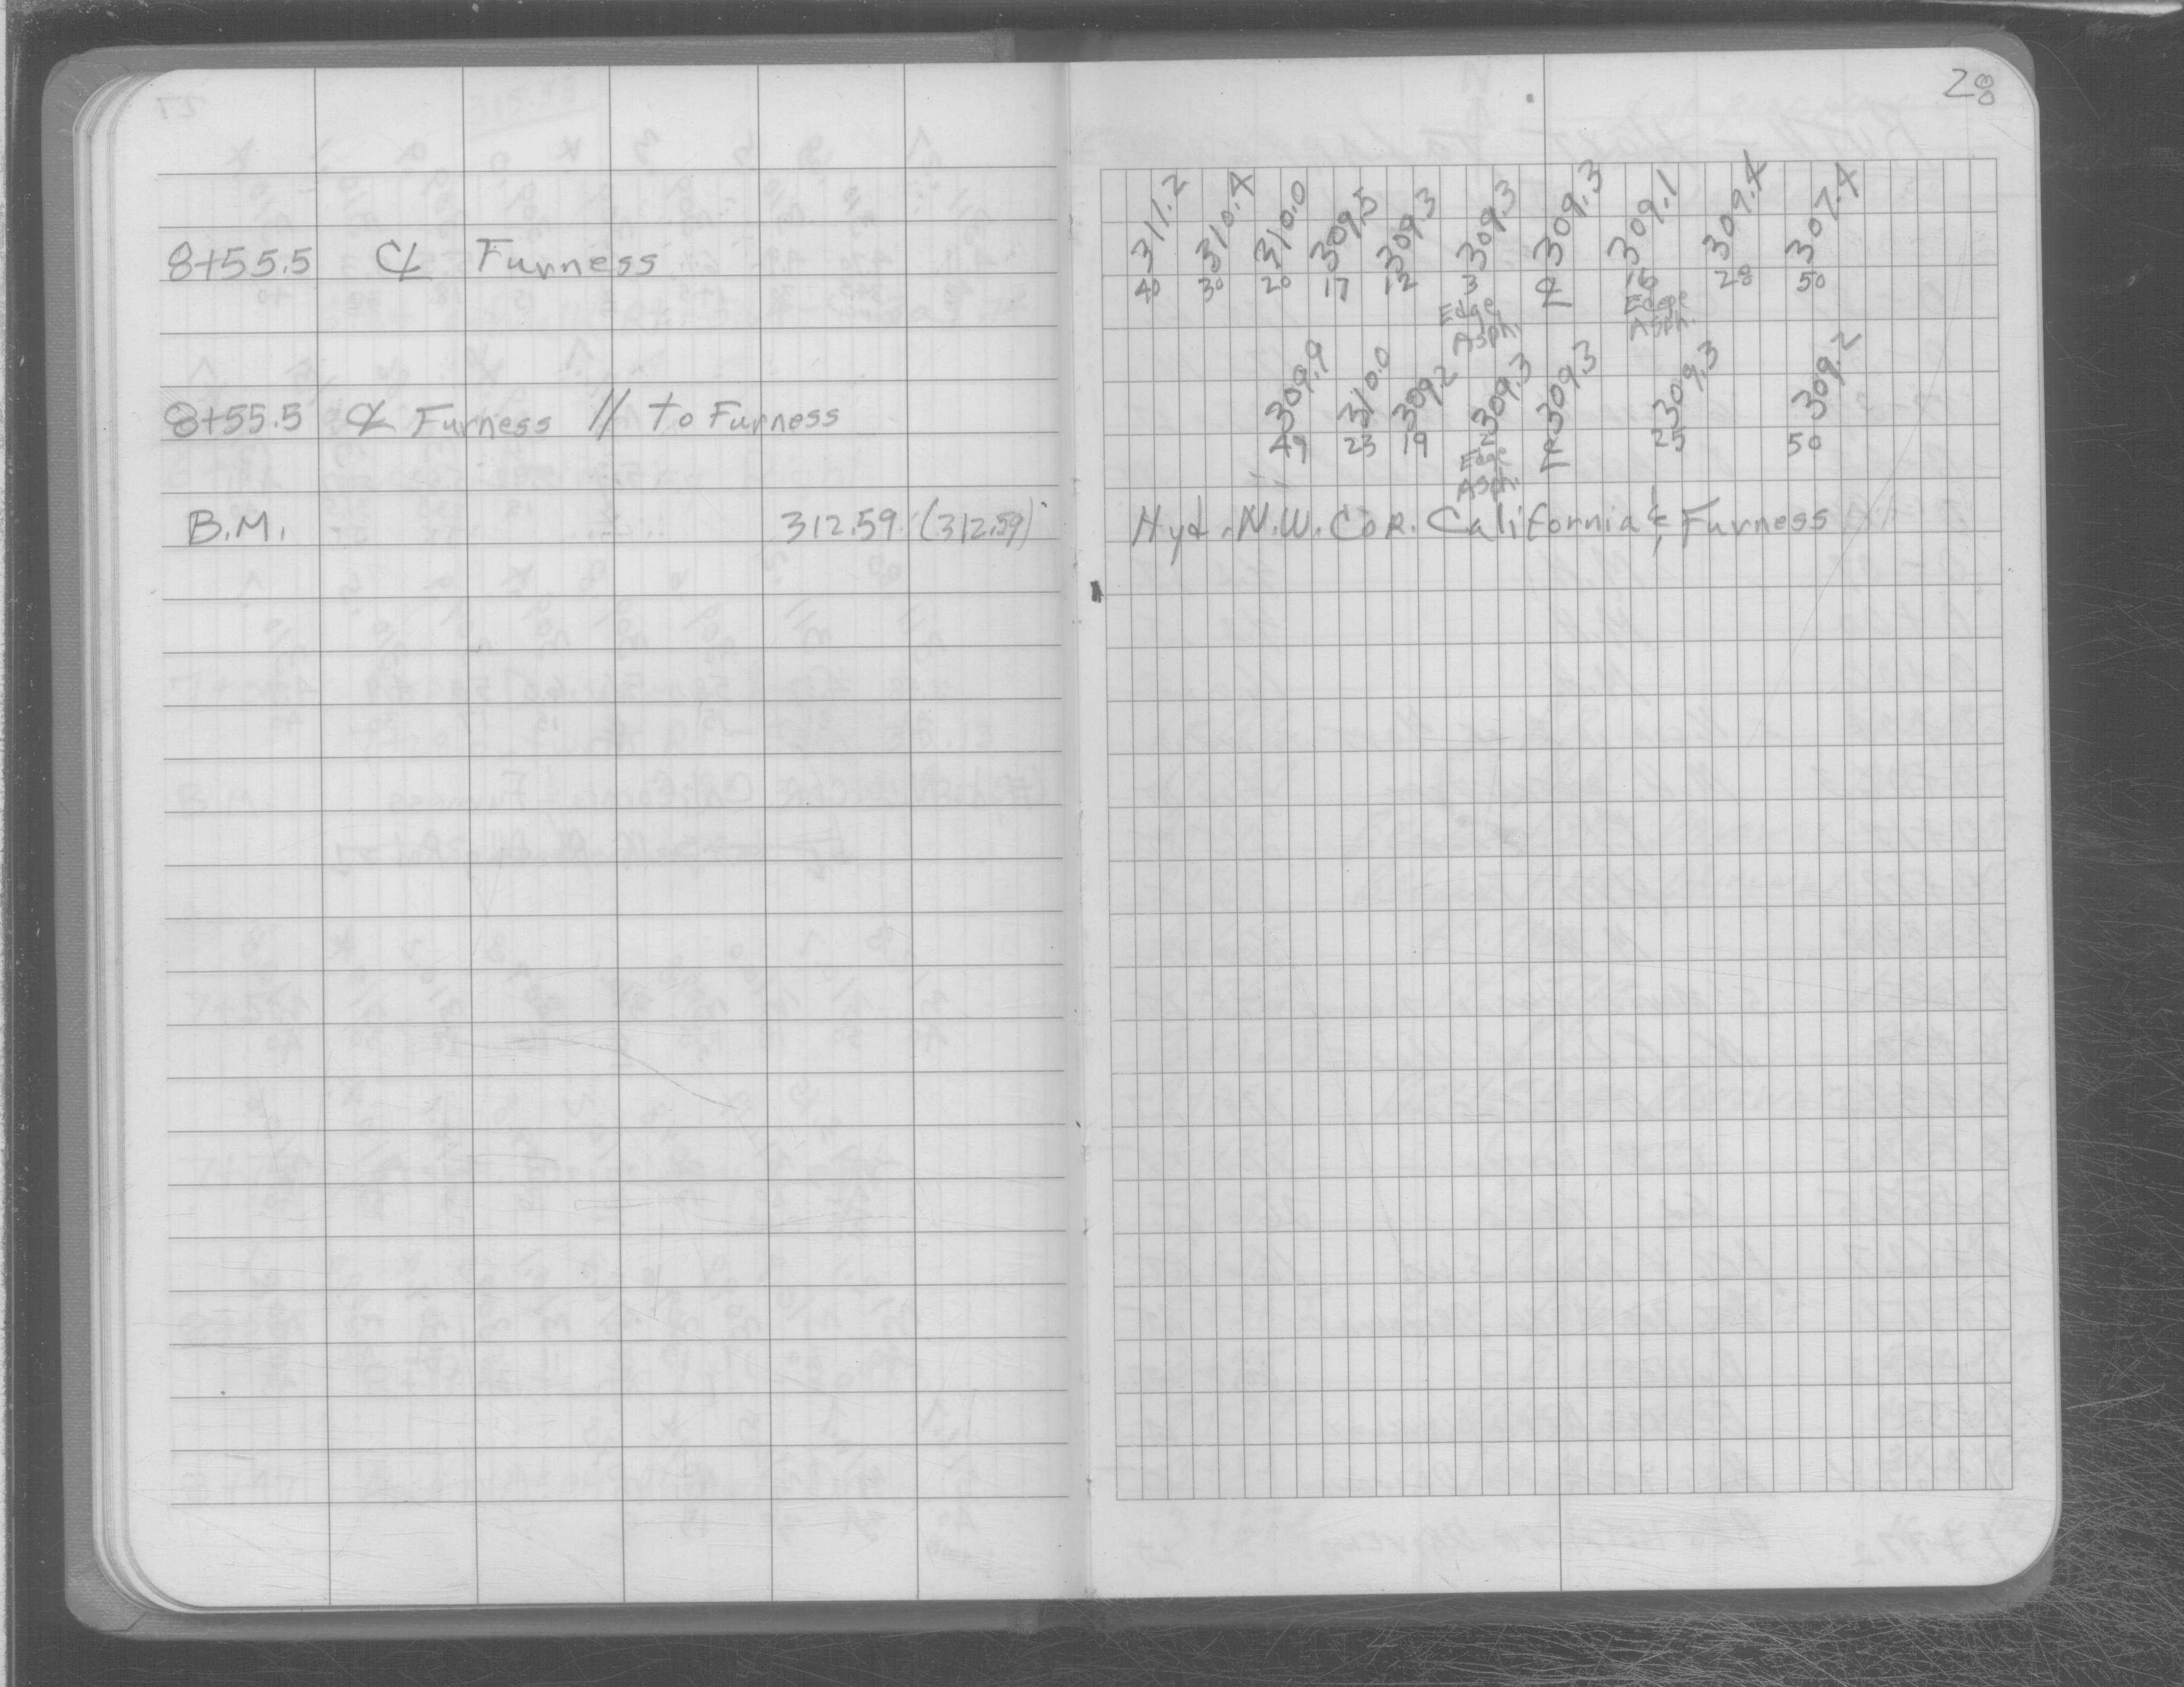 28
8+55.5 ℄ Furness
311.2 310.4 310.0 309.5 309.3 309.3 309.3 309.1 307.4 307.4
40 30 20 17 12 3 ℄ 16 28 50
Edge Edge
Asph. Asph.
309.9 310.0 309.2 309.3 309.3 309.3 309.2
8+55.5 ℄ Furness // to Furness
49 23 19 2 ℄ 25 50
Edge
Asph.
B.M. 312.59 (312.59) Hyd. N.W. Cor. California & Furness